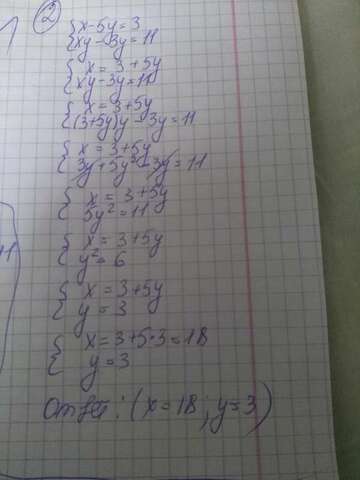 2
{x-5y=3
{xy-3y=11
{x=3+5y
{xy-3y=11
{x=3+5y
{(3+5y)y-3y=11
{x=3+5y
{3y+5y²-3y=11
{x=3+5y
{5y²=11
{x=3+5y
{y²=6
{x=3+5y
{y=3
{x=3+5·3=18
{y=3
Ответ: (x=18; y=3)